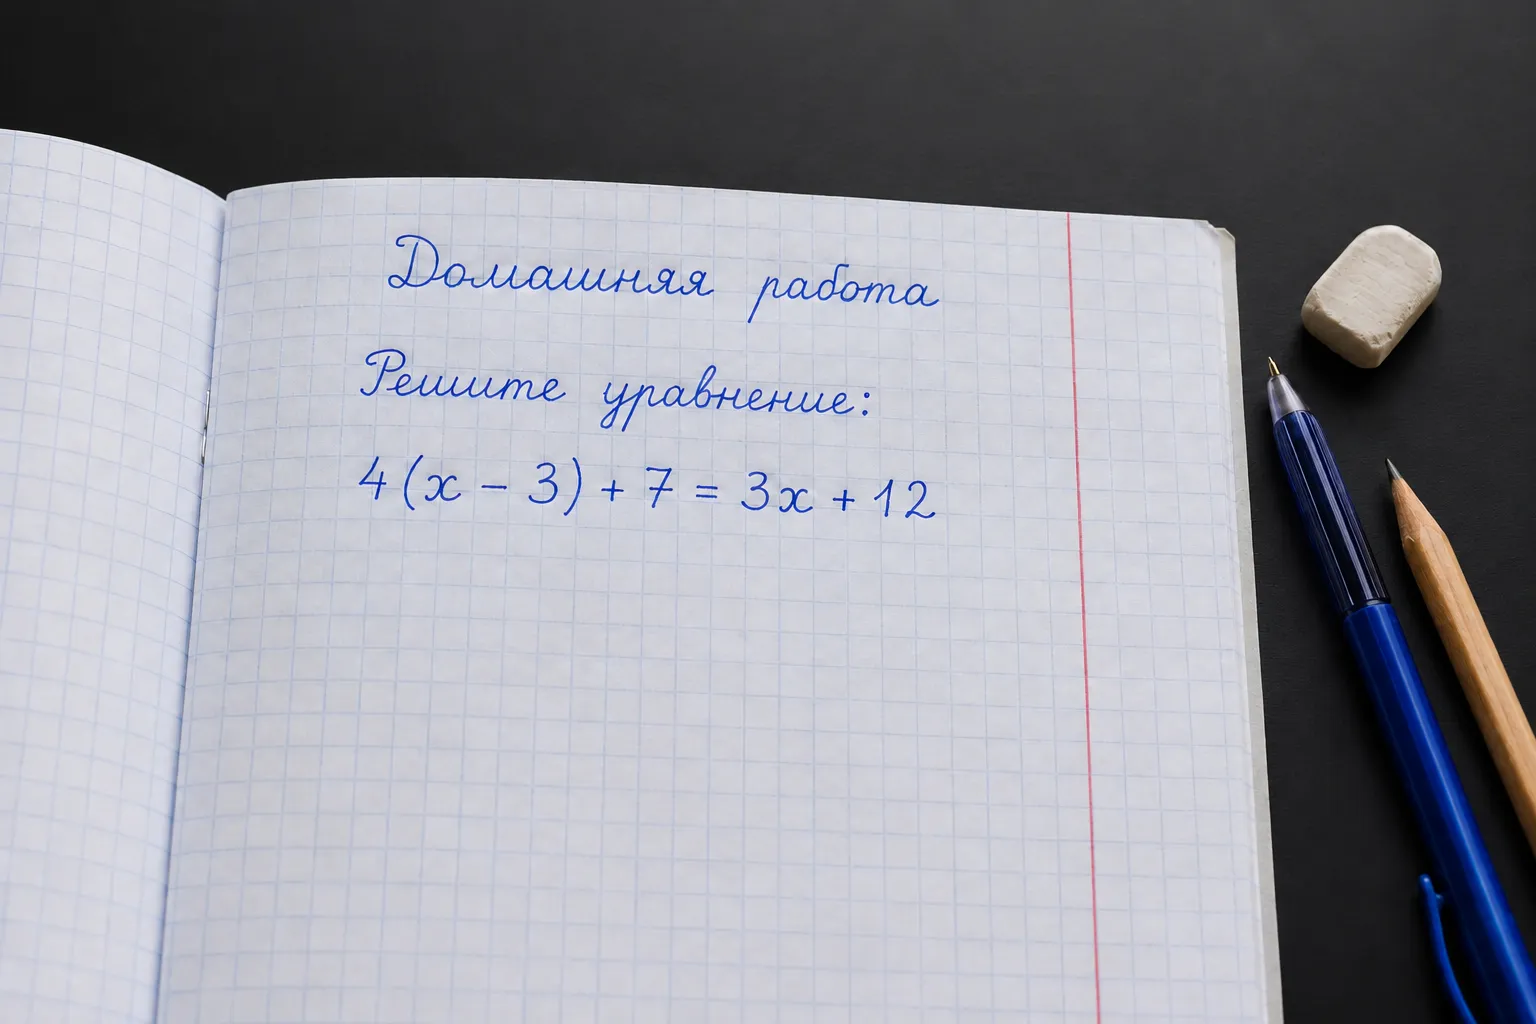 Домашняя работа
Решите уравнение:
4(x - 3) + 7 = 3x + 12